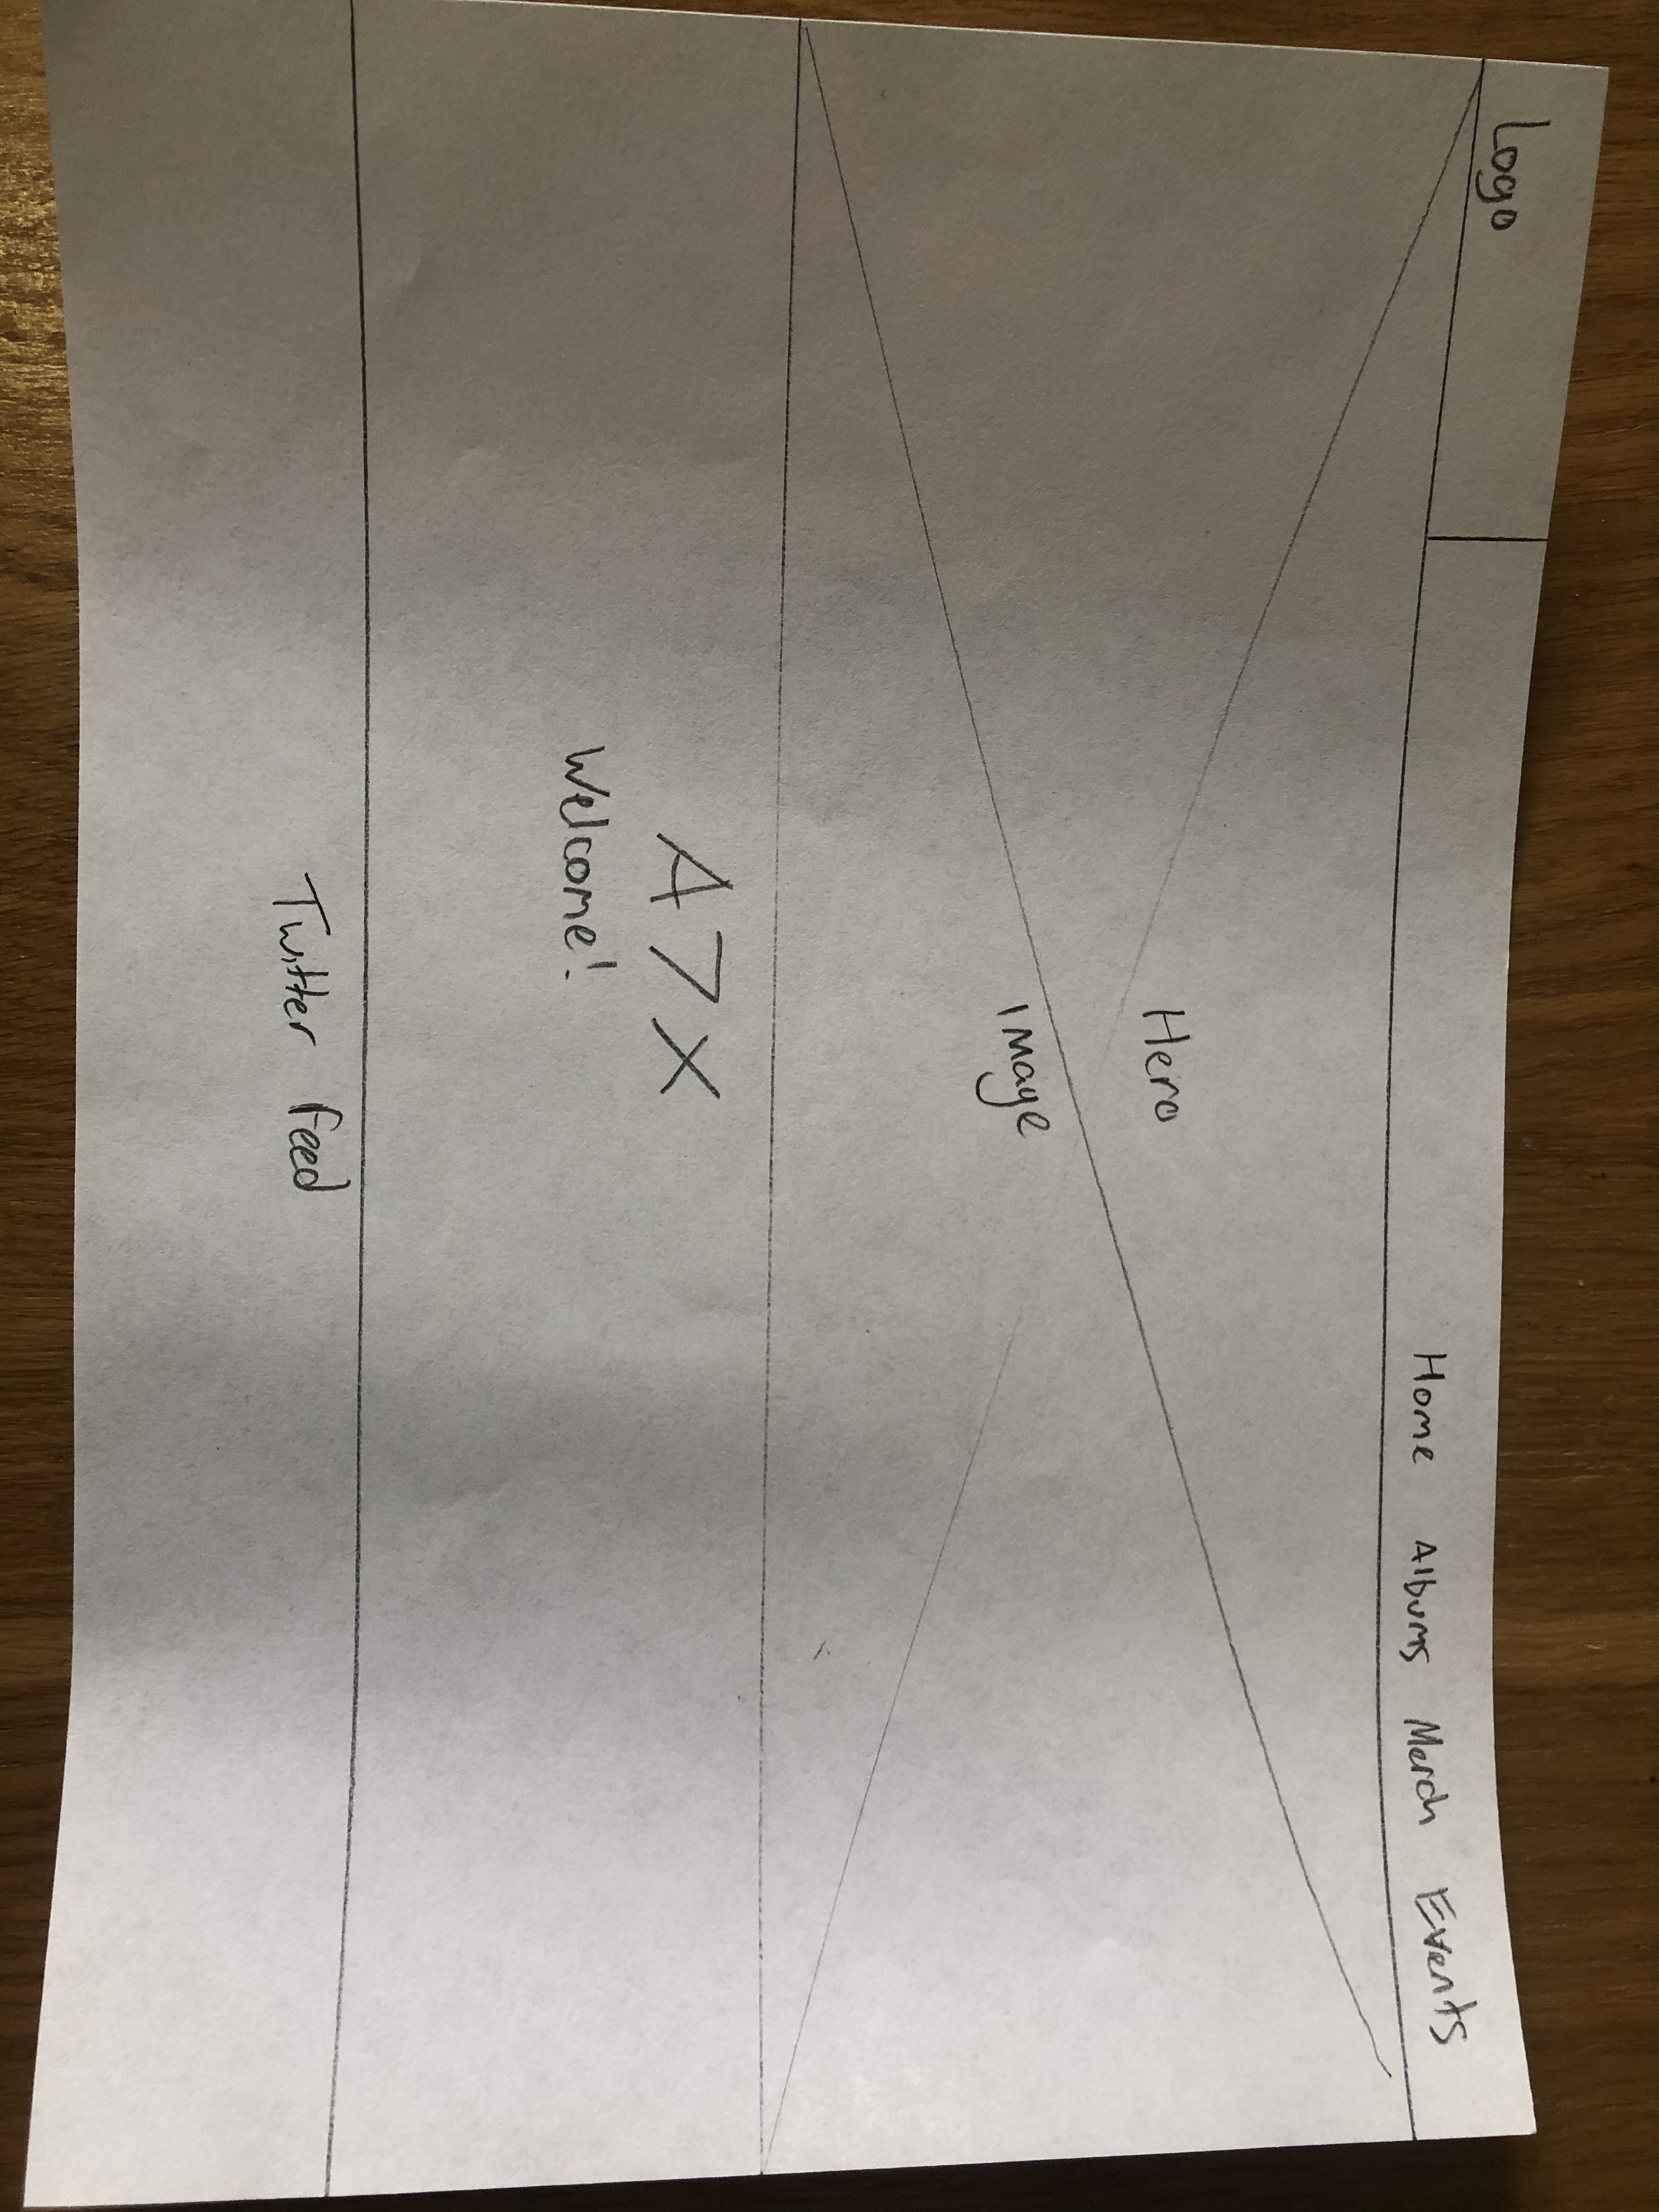 Logo
Home Albums Merch Events
Hero
Image
A7X
Welcome!
Twitter Feed